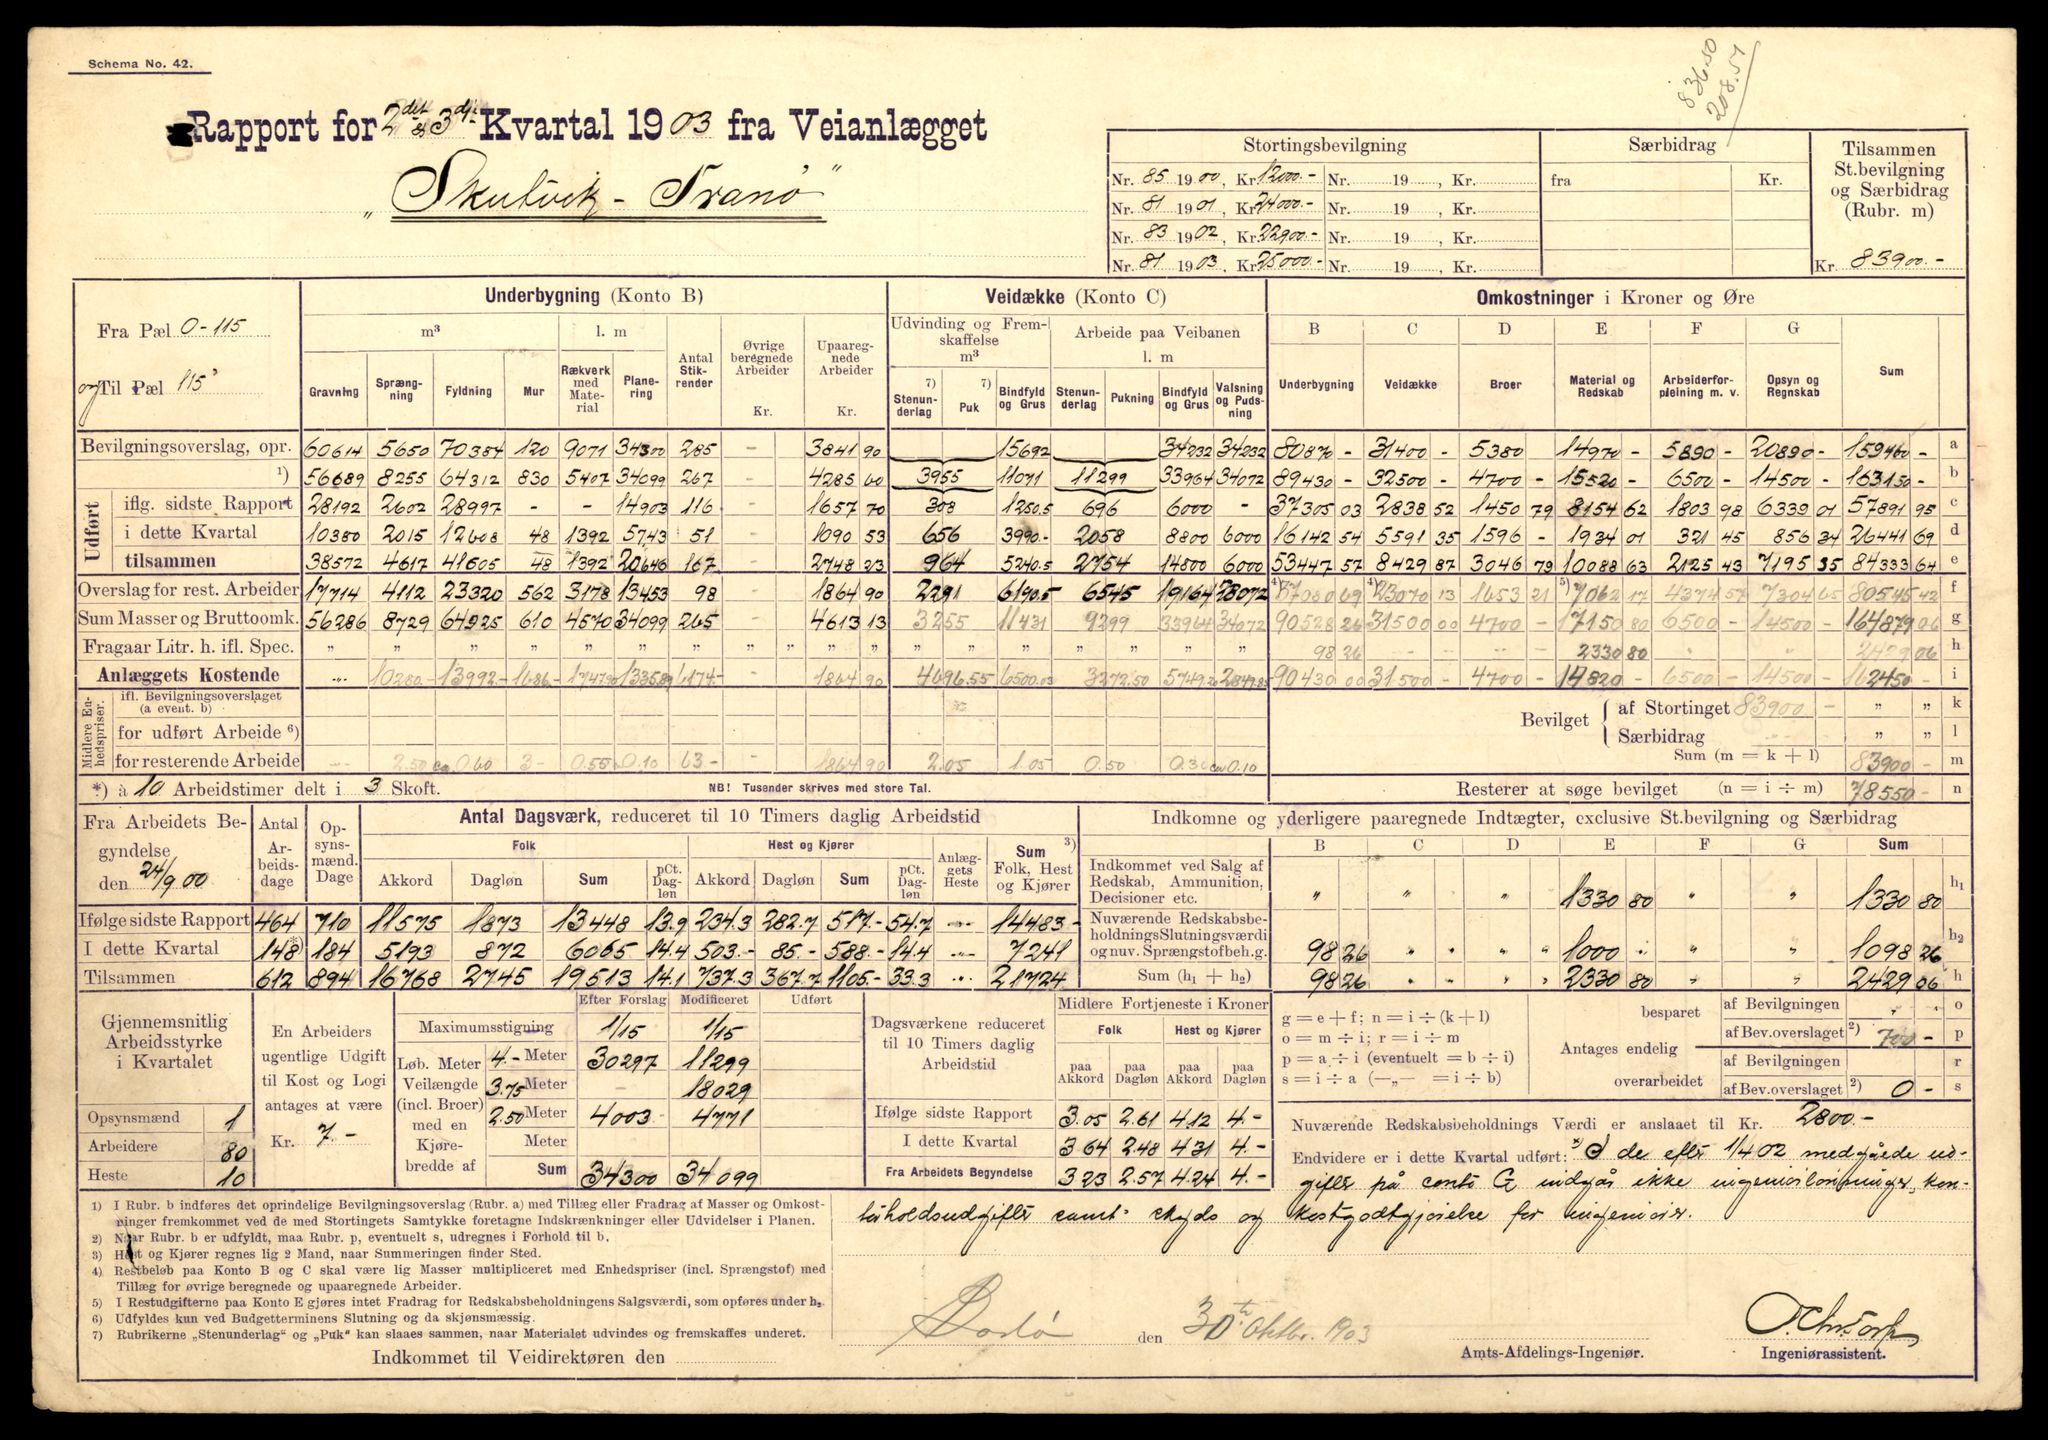 Schema No. 42.
83650
208.57
Rapport for 2det & 3dje Kvartal 1903 fra Veianlægget
"Skutvik - Tranø"
Stortingsbevilgning Særbidrag Tilsammen St.bevilgning og Særbidrag (Rubr. m)
Nr. 85 1900, Kr. 12000.- Nr. 19 , Kr. fra Kr.
Nr. 81 1901, Kr. 24000.- Nr. 19 , Kr.
Nr. 83 1902, Kr. 22900.- Nr. 19 , Kr.
Nr. 81 1903, Kr. 25000.- Nr. 19 , Kr. Kr. 83900.-
Fra Pæl 0-115
og Til Pæl 115
Underbygning (Konto B) Veidække (Konto C) Omkostninger i Kroner og Øre
m³ l. m Antal Stikrender Øvrige beregnede Arbeider Kr. Upaaregnede Arbeider Kr. Udvinding og Fremskaffelse m³ Arbeide paa Veibanen l. m B C D E F G
Gravning Sprængning Fyldning Mur Rækverk med Material Planering 7) Stenunderlag 7) Puk Bindfyld og Grus Stenunderlag Pukning Bindfyld og Grus Valsning og Pudsning Underbygning Veidække Broer Material og Redskab Arbeiderforpleining m. v. Opsyn og Regnskab Sum
Bevilgningsoverslag, opr. 60614 5650 70384 120 9071 34300 285 - 3841 90 15692 34232 34232 80870 - 31400 - 5380 14970 - 5890 - 20890 - 159400 - a
1) 56689 8255 64312 830 5407 34099 267 - 4285 60 3955 11071 11299 33964 34072 89430 - 32500 - 4700 - 15520 - 6500 - 14500 - 163150 - b
Udført
iflg. sidste Rapport 28192 2602 28997 - - 14903 116 - 1657 70 308 1250.5 696 6000 - 37305 03 2838 52 1450 79 8154 62 1803 98 6339 01 57891 95 c
i dette Kvartal 10380 2015 12608 48 1392 5743 51 - 1090 53 656 3990.- 2058 8800 6000 16142 54 5591 35 1596 - 1934 01 321 45 856 34 26441 69 d
tilsammen 38572 4617 41605 48 1392 20646 167 - 2748 23 964 5240.5 2754 14800 6000 53447 57 8429 87 3046 79 10088 63 2125 43 7195 35 84333 64 e
Overslag for rest. Arbeider 17714 4112 23320 562 3178 13453 98 - 1864 90 2291 6190.5 6545 19164 28072 4) 37080 69 4) 23070 13 1653 21 5) 7062 17 4374 57 7304 65 80545 42 f
Sum Masser og Bruttoomk. 56286 8729 64925 610 4570 34099 265 - 4613 13 3255 11431 9299 33964 34072 90528 26 31500 00 4700 - 17150 80 6500 - 14500 - 164879 06 g
Fragaar Litr. h. ifl. Spec. " " " " " " " " " " " " " " " " 98 26 2330 80 2429 06 h
Anlæggets Kostende 10280.- 13992.- 1686.- 6174.- - 1864 90 4696.55 6500.03 3272.50 90430 00 31500 - 4700 - 14820 - 6500 - 14500 - 162450 - i
Midlere Enhedspriser.
ifl. Bevilgningsoverslaget (a event. b)
for udført Arbeide 6)
for resterende Arbeide 2.50 0.60 3- 0.55 0.10 63.- - 1864 90 2.05 1.05 0.50 0.30 0.10
Bevilget af Stortinget 83900 - " " k
Særbidrag " " l
Sum (m = k + l) 83900 - m
Resterer at søge bevilget (n = i ÷ m) 78550 - n
*) à 10 Arbeidstimer delt i 3 Skoft. NB! Tusender skrives med store Tal.
Fra Arbeidets Begyndelse den 24/9 00 Antal Arbeidsdage Opsynsmænd. Dage Antal Dagsværk, reduceret til 10 Timers daglig Arbeidstid
Folk Hest og Kjører Anlæggets Heste Sum 3) Folk, Hest og Kjører
Akkord Dagløn Sum pCt. Dagløn Akkord Dagløn Sum pCt. Dagløn
Ifølge sidste Rapport 464 710 11575 1873 13448 13.9 234.3 282.7 517.- 54.7 14483.-
I dette Kvartal 148*) 184 5193 872 6065 14.4 503.- 85.- 588.- 14.4 7241
Tilsammen 612 894 16768 2745 19513 14.1 737.3 367.7 1105.- 33.3 21724
Indkomne og yderligere paaregnede Indtægter, exclusive St.bevilgning og Særbidrag
B C D E F G Sum
Indkommet ved Salg af Redskab, Ammunition, Decisioner etc. " " " 1330 80 " " 1330 80 h1
Nuværende Redskabsbeholdnings Slutningsværdi og nuv. Sprængstofbeh.g. 98 26 " " 1000 " " " 1098 26 h2
Sum (h1 + h2) 98 26 " " 2330 80 " " 2429 06 h
Gjennemsnitlig Arbeidsstyrke i Kvartalet
Opsynsmænd 1
Arbeidere 80
Heste 10
En Arbeiders ugentlige Udgift til Kost og Logi antages at være
Kr. 7.-
Efter Forslag Modificeret Udført
Maximumsstigning 1/15 1/15
Løb. Meter Veilængde (incl. Broer) med en Kjørebredde af
4.- Meter 30297 11299
3.75 Meter - 18029
2.50 Meter 4003 4771
Meter
Sum 34300 34099
Dagsværkene reduceret til 10 Timers daglig Arbeidstid Midlere Fortjeneste i Kroner
Folk Hest og Kjører
paa Akkord paa Dagløn paa Akkord paa Dagløn
Ifølge sidste Rapport 3.05 2.61 4.12 4.-
I dette Kvartal 3 64 2.48 4 31 4.-
Fra Arbeidets Begyndelse 3 23 2.57 4.24 4.-
g = e + f; n = i ÷ (k + l)
o = m ÷ i; r = i ÷ m
p = a ÷ i (eventuelt = b ÷ i)
s = i ÷ a (—„— = i ÷ b)
Antages endelig
besparet af Bevilgningen o
af Bev.overslaget 2) 700 - p
overarbeidet af Bevilgningen r
af Bev.overslaget 2) 0 - s
Nuværende Redskabsbeholdnings Værdi er anslaaet til Kr. 2800.-
Endvidere er i dette Kvartal udført: *) I de efter 1/4 02 medgåede ud-
gifter på conto G indgår ikke ingeniørlønninger, kon-
torholdsudgifter samt skyds og kostgodtgjørelse for ingeniører.
1) I Rubr. b indføres det oprindelige Bevilgningsoverslag (Rubr. a) med Tillæg eller Fradrag af Masser og Omkostninger fremkommet ved de med Stortingets Samtykke foretagne Indskrænkninger eller Udvidelser i Planen.
2) Naar Rubr. b er udfyldt, maa Rubr. p, eventuelt s, udregnes i Forhold til b.
3) Hest og Kjører regnes lig 2 Mand, naar Summeringen finder Sted.
4) Restbeløb paa Konto B og C skal være lig Masser multipliceret med Enhedspriser (incl. Sprængstof) med Tillæg for øvrige beregnede og upaaregnede Arbeider.
5) I Restudgifterne paa Konto E gjøres intet Fradrag for Redskabsbeholdningens Salgsværdi, som opføres under h2
6) Udfyldes kun ved Budgetterminens Slutning og da skjønsmæssig.
7) Rubrikerne „Stenunderlag" og „Puk" kan slaaes sammen, naar Materialet udvindes og fremskaffes underet.
Indkommet til Veidirektøren den
Bodø den 30te Oktbr. 1903
Amts-Afdelings-Ingeniør. Ingeniørassistent.